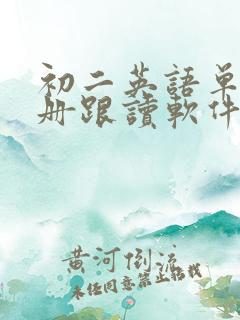 初二英語單
册跟讀軟件
黄河倒流
未经同意禁止转载